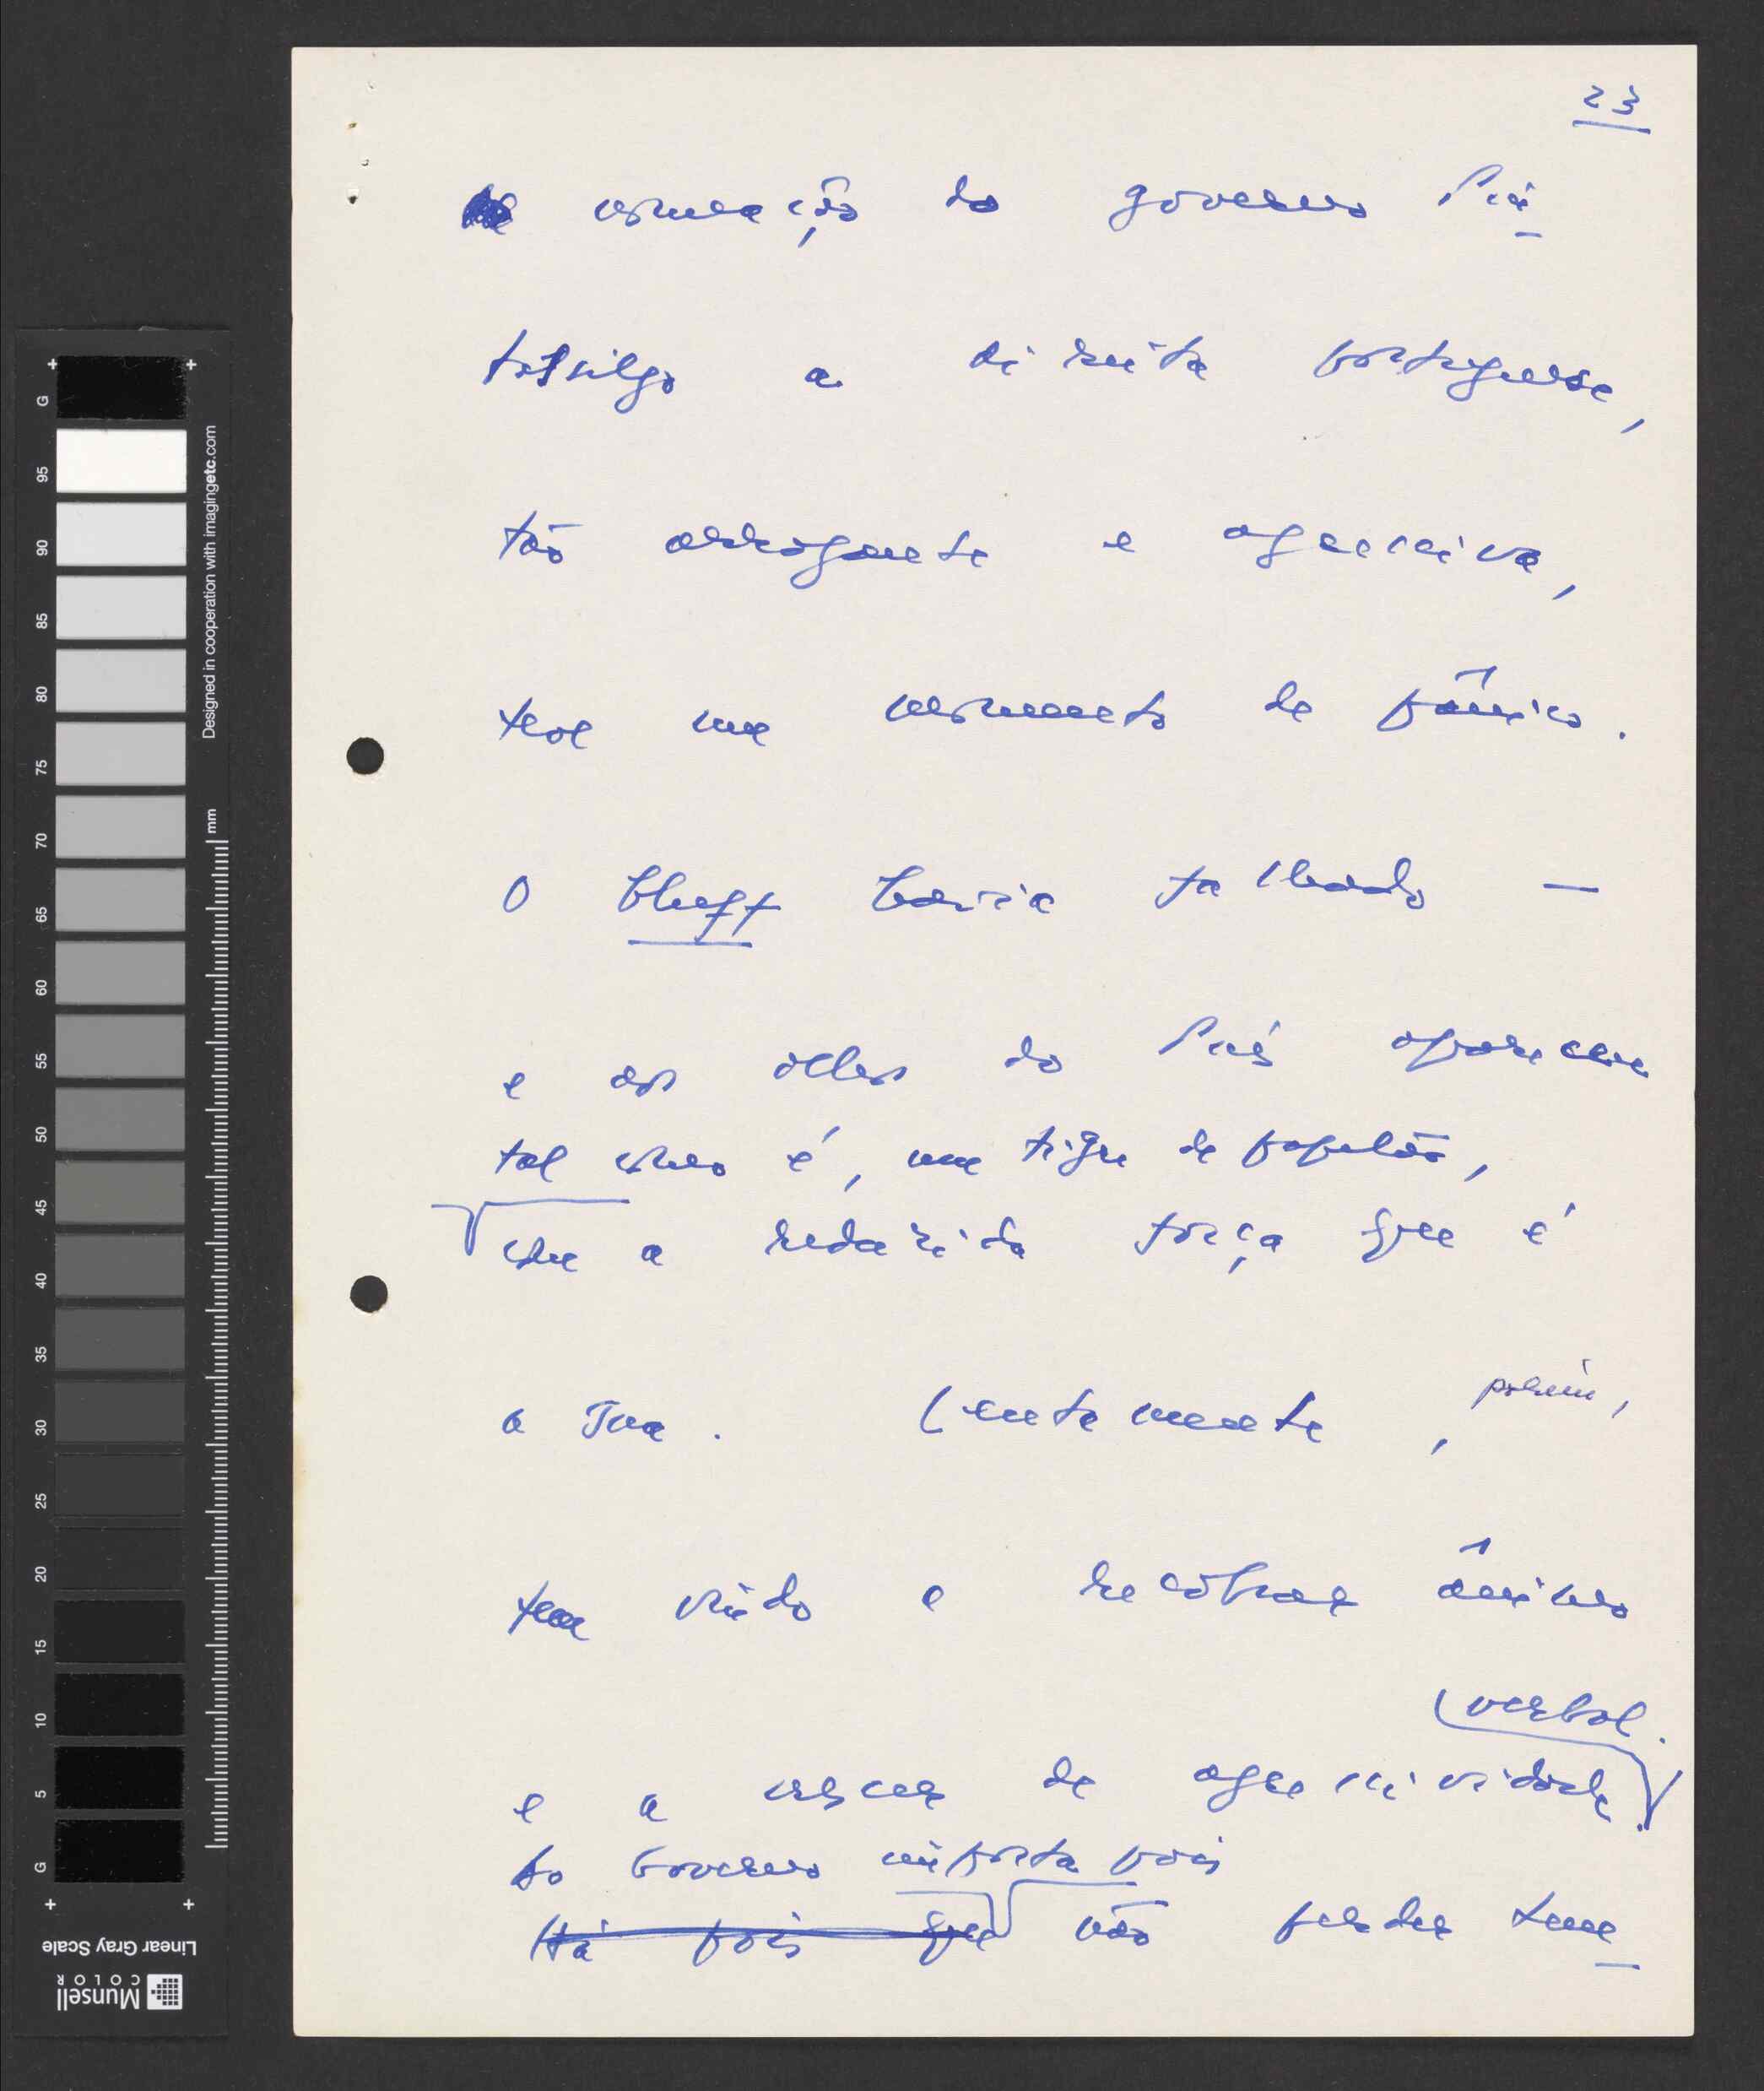 23
formação do governo Pin
tasilgo a direita portuguesa,
tão arrogante e agressiva,
teve um momento de pânico.
O bluff havia falhado —
e aos olhos do País aparecia
tal como é, um tigre de papelão,
com a reduzida força que é
a sua. Lentamente, porém,
tem vindo a recobrar ânimo
verbal.
e a crescer de agressividade
Ao Governo importa pois
Há pois que não perder tem
G 95 90 85 80 75 70 65 60 55 50 45 40 35 30 25 20 15 10 5 G
Designed in cooperation with imagingetc.com
mm
Linear Gray Scale
Munsell
COLOR